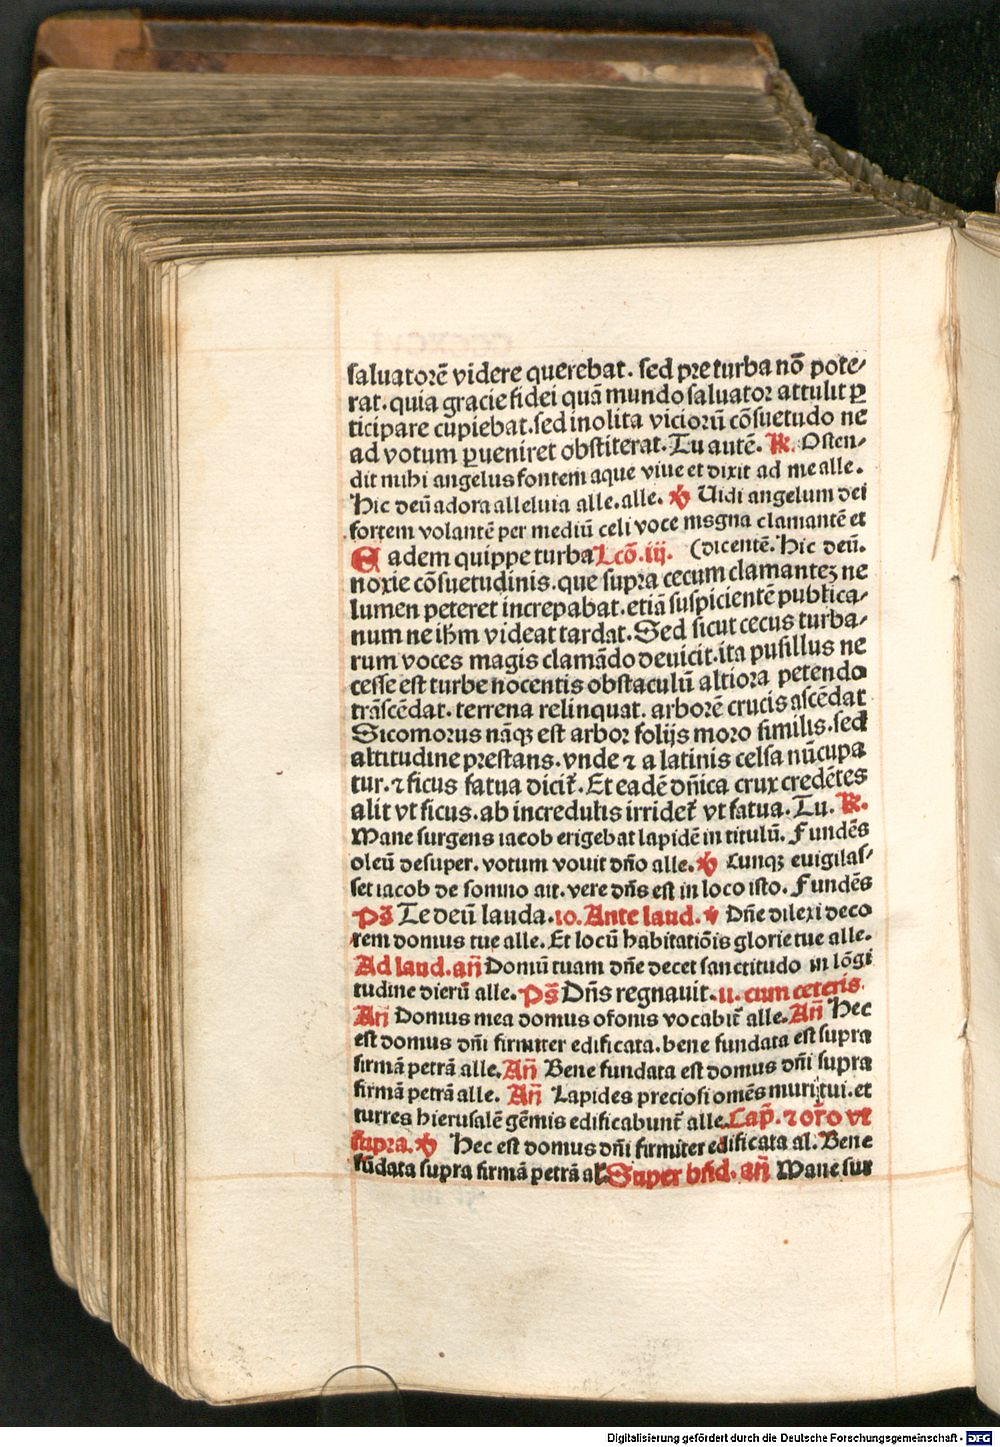 saluatorē videre querebat. sed pre turba nō pote/
rat. quia gracie fidei quā mundo saluator attulit ꝑ
ticipare cupiebat. sed inolita vicioꝛū cōsuetudo ne
ad votum ꝑueniret obstiterat. Tu autē. ℟. Osten/
dit mihi angelus fontem aque viue et dixit ad me alle.
Hic deū adora alleluia alle. alle. ℣ Uidi angelum dei
fortem volantē per mediū celi voce magna clamantē et
Eadem quippe turba Lcō. iij. (dicentē. Hic deū.
noxie cōsuetudinis. que supra cecum clamantez ne
lumen peteret increpabat. etiā suspicientē publica/
num ne ihm videat tardat. Sed sicut cecus turba/
rum voces magis clamādo deuicit. ita pusillus ne
cesse est turbe nocentis obstaculū altiora petendo
trāscēdat. terrena relinquat. arborē crucis ascēdat
Sicomorus nāqꝫ est arbor folijs moro similis. sed
altitudine prestans. vnde ⁊ a latinis celsa nūcupa
tur. ⁊ ficus fatua dicit᷑. Et eadē dn̄ica crux credētes
alit vt ficus. ab incredulis irridet᷑ vt fatua. Tu. ℟.
Mane surgens iacob erigebat lapidē in titulū. Fundēs
oleū desuper. votum vouit dn̄o alle. ℣ Cunqꝫ euigilas/
set iacob de somno ait. vere dn̄s est in loco isto. Fundēs
Ps̄ Te deū lauda. io. Ante laud. ℣ Dn̄e dilexi deco
rem domus tue alle. Et locū habitatiōis glorie tue alle.
Ad laud. an̄ Domū tuam dn̄e decet sanctitudo in lōgi
tudine dierū alle. Ps̄ Dn̄s regnauit. u. cum ceteris.
An̄ Domus mea domus ofonis vocabit᷑ alle. An̄ Hec
est domus dn̄i firmiter edificata. bene fundata est supra
firmā petrā alle. An̄ Bene fundata est domus dn̄i supra
firmā petrā alle. An̄ Lapides preciosi omēs muri tui. et
turres hierusalē gēmis edificabunt᷑ alle. Cap̄. ⁊ or̄o vt
supra. ℣ Hec est domus dn̄i firmiter edificata al. Bene
fūdata supra firmā petrā al. Super bn̄d. an̄ Mane sur
Digitalisierung gefördert durch die Deutsche Forschungsgemeinschaft - DFG